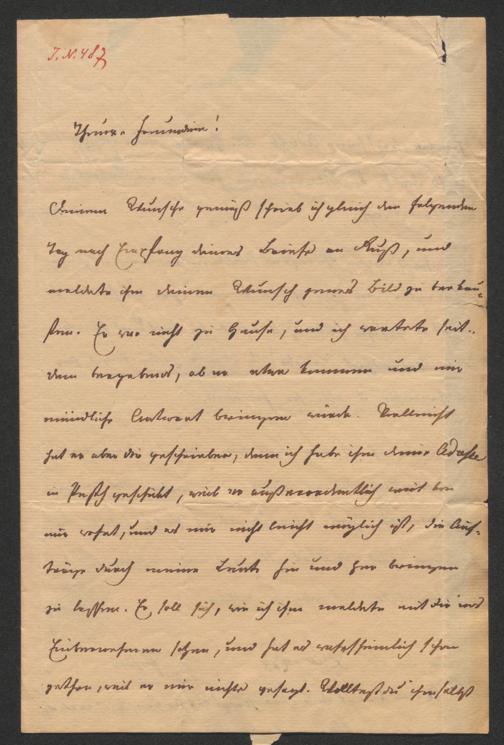 J.N. 487
Theure Freundin!
Deinem Wunsche gemäß schrieb ich gleich den folgenden
Tag nach Empfang deines Briefes an Ruß, und
meldete ihm deinen Wunsch jenes Bild zu verkau-
fen. Er war nicht zu Hause, und ich wartete seit-
dem vergebens, ob er etwa kommen und mir
mündliche Antwort bringen würde. Vielleicht
hat er aber dir geschrieben, denn ich habe ihm deine Adresse
in Pesth geschickt, weil er außerordentlich weit von
mir wohnt, und es mir nicht leicht möglich ist, die Auf-
träge durch meine Leute hin und her bringen
zu lassen. Er soll sich, wie ich ihm meldete mit dir ins
Einvernehmen setzen, und hat es wahrscheinlich schon
gethan, weil er mir nichts gesagt. Wolltest du ihm selbst